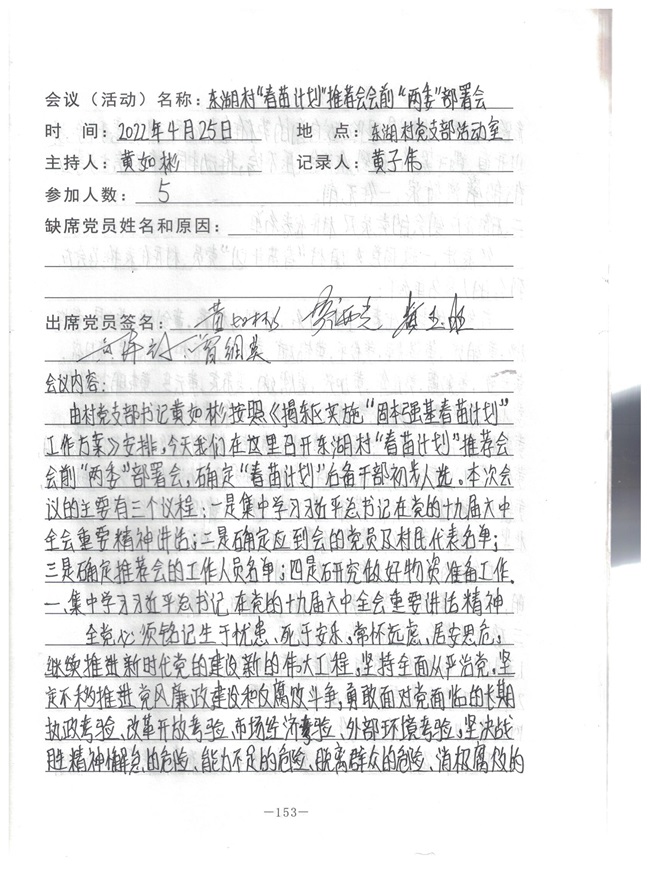 会议（活动）名称：东湖村“春苗计划”推荐会会前“两委”部署会
时 间：2022年4月25日 地 点：东湖村党支部活动室
主持人：黄如彬 记录人：黄子伟
参加人数：5
缺席党员姓名和原因：
出席党员签名：黄如彬
会议内容：
由村党支部书记黄如彬按照《揭东区实施“固本强基春苗计划”
工作方案》安排，今天我们在这里召开东湖村“春苗计划”推荐会
会前“两委”部署会，确定“春苗计划”后备干部初步人选。本次会
议的主要有三个议程：一是集中学习习近平总书记在党的十九届六中
全会重要精神讲话；二是确定应到会的党员及村民代表名单；
三是确定推荐会的工作人员名单；四是研究做好物资准备工作.
一、集中学习习近平总书记在党的十九届六中全会重要讲话精神
全党必须铭记生于忧患、死于安乐，常怀远虑、居安思危，
继续推进新时代党的建设新的伟大工程，坚持全面从严治党，坚
定不移推进党风廉政建设和反腐败斗争，勇敢面对党面临的长期
执政考验、改革开放考验、市场经济考验、外部环境考验，坚决战
胜精神懈怠的危险、能力不足的危险、脱离群众的危险、消极腐败的
—153—